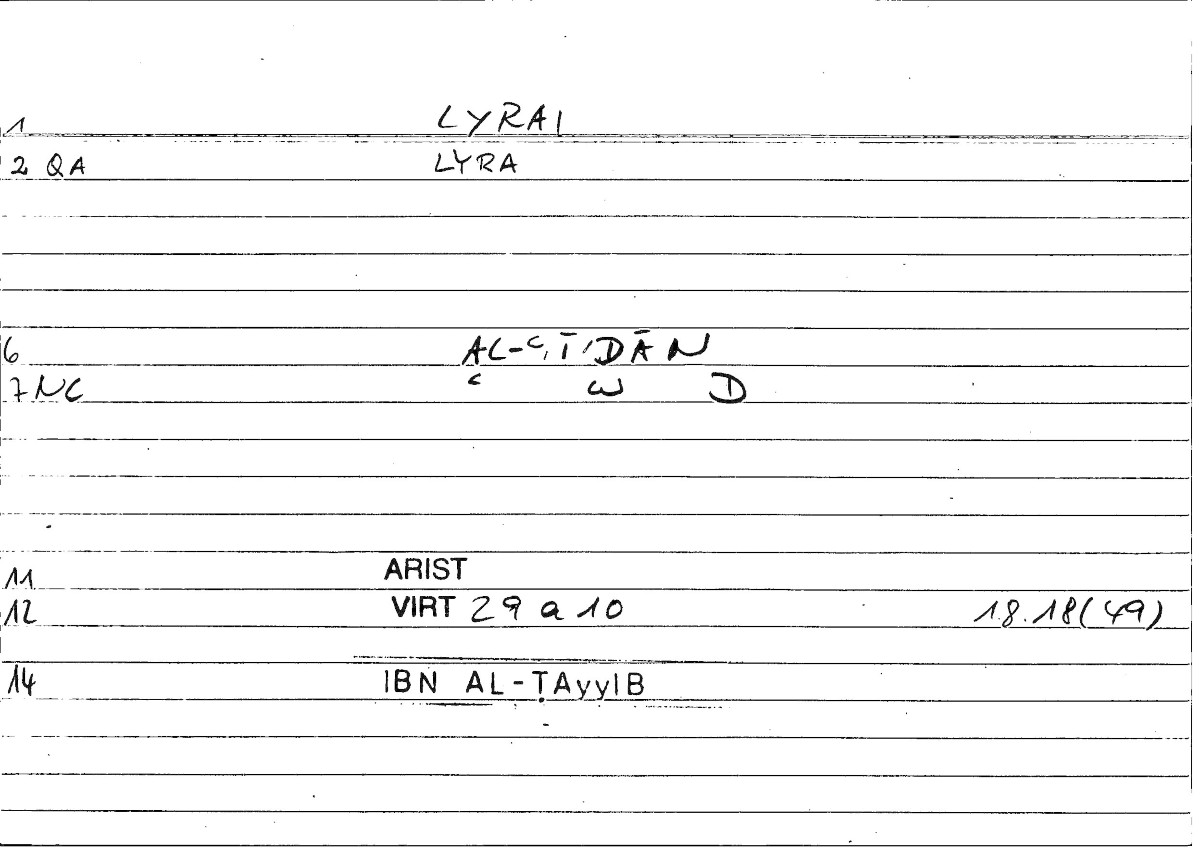 1 LYRAI
2 QA LYRA
6 AL-ʿĪDĀN
7 NC ʿ W D
11 ARIST
12 VIRT 29 a 10 18.18(49)
14 IBN AL-ṬAyyIB